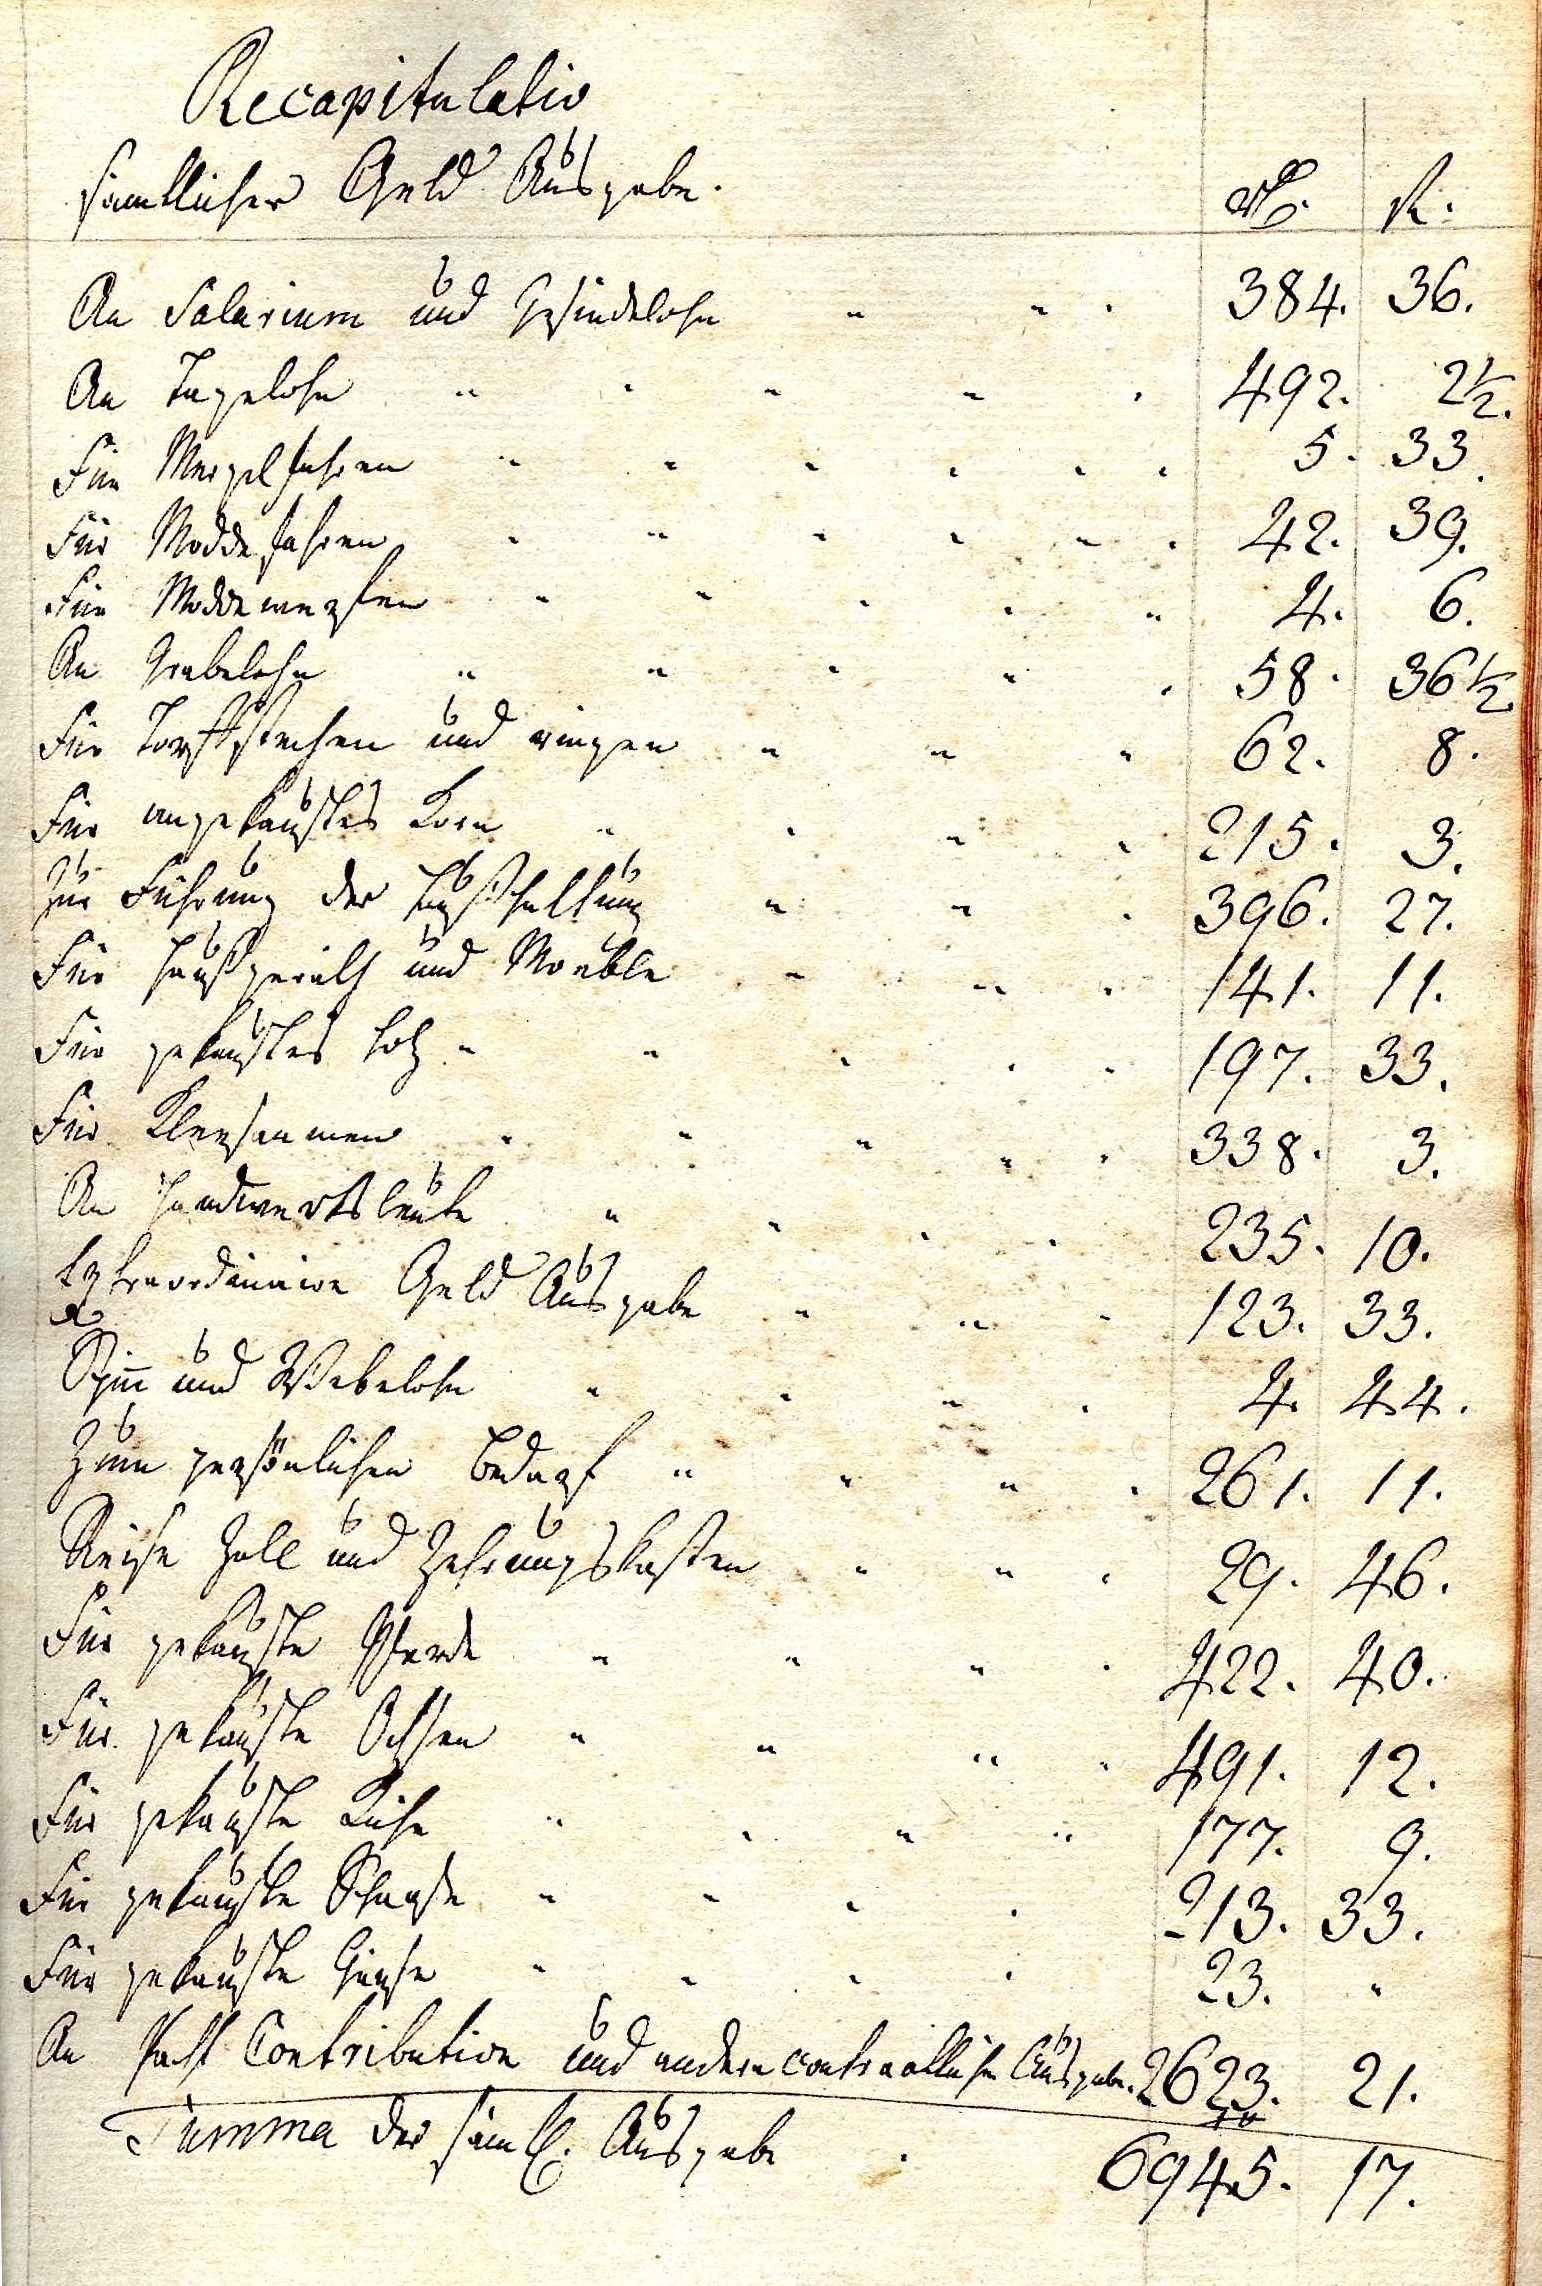 Recapitulatio
sämtlicher Geld Ausgabe.
Rth. ßl.
An Salarium und Gesindelohn " " . 384. 36.
An Tagelohn " " " " . 492. 2 1/2.
Für Mergelfahren " " " " " . 5. 33.
Für Moddefahren " " " " " . 42. 39.
Für Moddewerfen " " " " " 4. 6.
An Grabelohn " " " " . 58. 36 1/2.
Für Torffstechen und ringen " " " 62. 8.
Für angekauftes Korn " " " " 215. 3.
Zur Führung der Haußhaltung " " . 396. 27.
Für Haußgeräth und Meuble " " . 141. 11.
Für gekauftes Holz " " " . . 197. 33.
Für Kleesaamen " " " " . 338. 3.
An Handwerksleute " " . . 235. 10.
Extraordinaire Geld Ausgabe " " " 123. 33.
Spinn und Webelohn " " " . 4. 44.
Zum persönlichen Bedarf " " " . 261. 11.
Reise Zoll und Zehrungskosten " " . 29. 46.
Für gekaufte Pferde " " " . 422. 40.
Für gekaufte Ochsen " " " " 491. 12.
Für gekaufte Kühe " " " " 177. 9.
Für gekaufte Schaafe " " " . 213. 33.
Für gekaufte Gänse " " " . 23. "
An Pacht Contribution und andern contractlichen Ausgaben. 2623. 21.
Summa der sämtl. Ausgabe . 6945. 17.